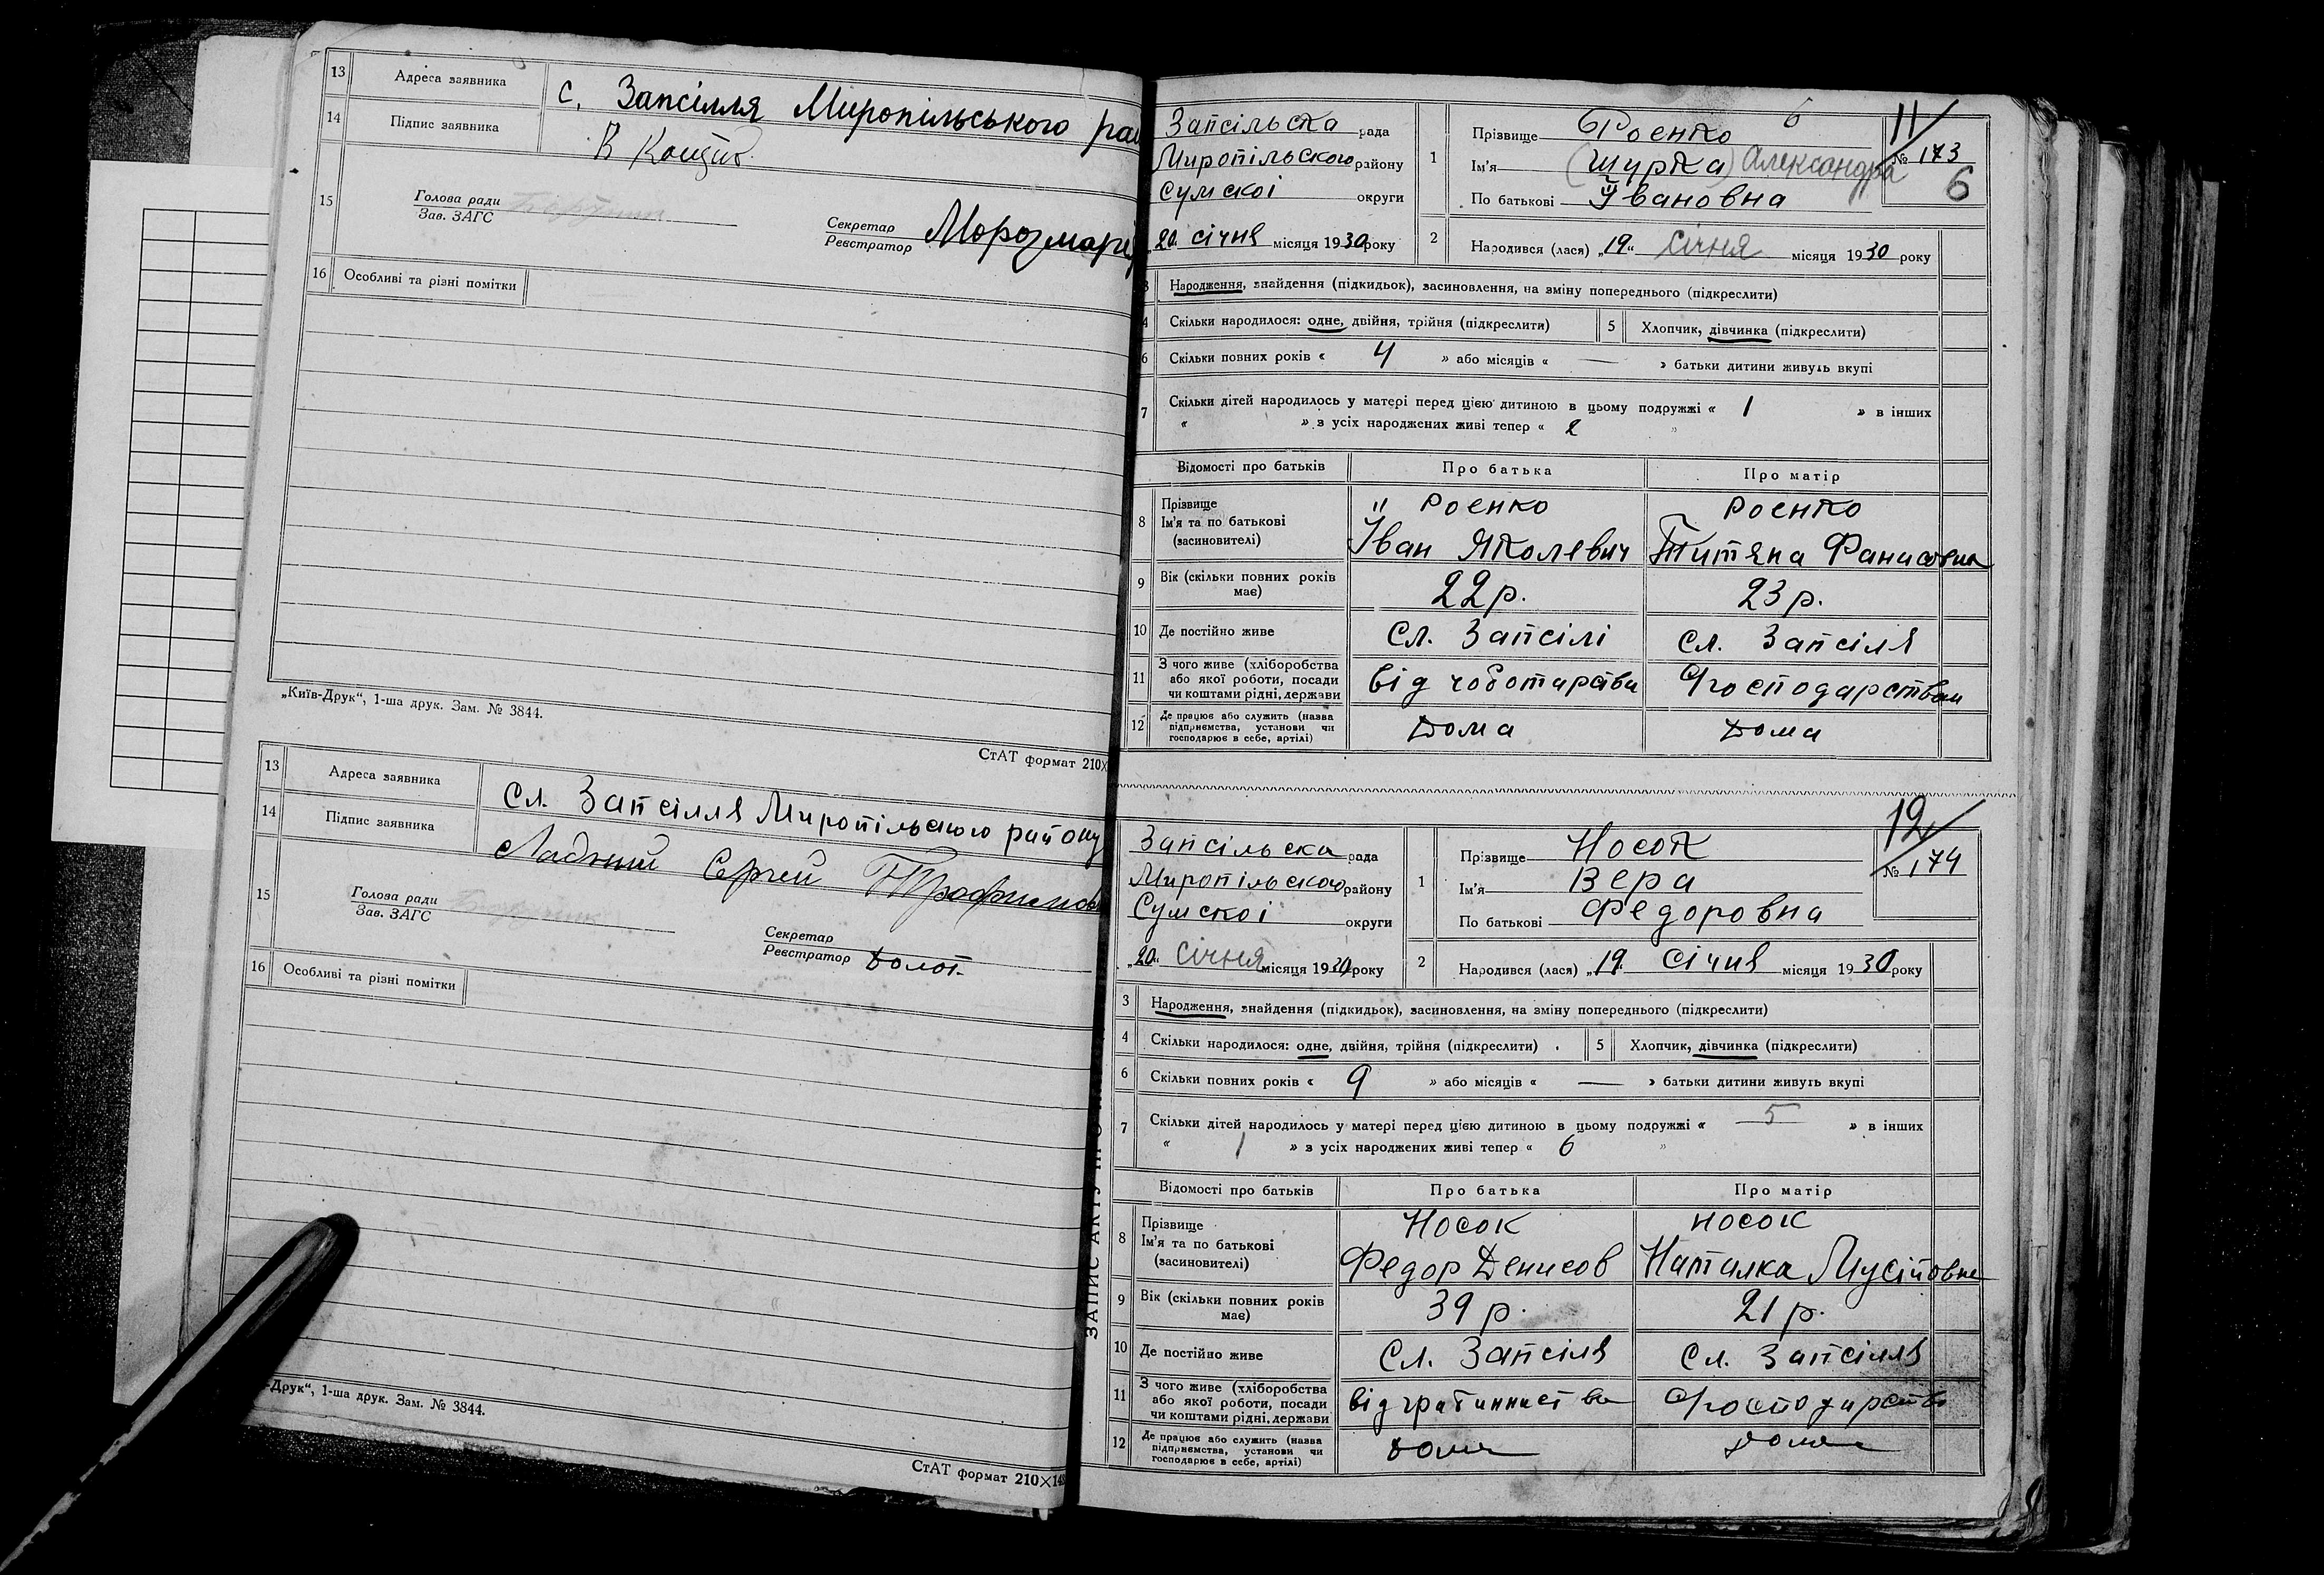 13 Адреса заявника с. Запсілля Миропільського рай
14 Підпис заявника В
15 Голова ради
Зав. ЗАГС
Секретар
Реєстратор
16 Особливі та різні помітки
„Київ-Друк“, 1-ша друк. Зам. № 3844.
СтАТ формат 210×
13 Адреса заявника Сл. Запсілля Миропільського району
14 Підпис заявника Сергей
15 Голова ради
Зав. ЗАГС
Секретар
Реєстратор
16 Особливі та різні помітки
-Друк“, 1-ша друк. Зам. № 3844.
СтАТ формат 210×148
ЗАПИС АКТУ ПРО
6
11/
Запсільська рада
Миропільского району
Сумскоі округи
„20“ січня місяця 1930 року
1 Прізвище Роенко
Ім'я (Шурка) Александра
По батькові Івановна
№ 173
6
2 Народився (лася) „19“ Січня місяця 1930 року
3 Народження, знайдення (підкидьок), засиновлення, на зміну попереднього (підкреслити)
4 Скільки народилося: одне, двійня, трійня (підкреслити) 5 Хлопчик, дівчинка (підкреслити)
6 Скільки повних років « 4 » або місяців « — » батьки дитини живуть вкупі
7 Скільки дітей народилось у матері перед цією дитиною в цьому подружжі « 1 » в інших
« » з усіх народжених живі тепер « 2 »
Відомості про батьків Про батька Про матір
8 Прізвище
Ім'я та по батькові
(засиновителі)
Роенко
Іван Яколевич
Роенко
Титяна
9 Вік (скільки повних років
має)
22 р. 23 р.
10 Де постійно живе Сл. Запсілі Сл. Запсіля
11 З чого живе (хліборобства
або якої роботи, посади
чи коштами рідні, держави
від чоботарства
12 Де працює або служить (назва
підприємства, установи чи
господарює в себе, артілі)
Дома Дома
12/
Запсільска рада
Миропільского району
Сумскоі округи
„20“ Січня місяця 1930 року
1 Прізвище Носок
Ім'я Вера
По батькові Федоровна
№ 174
2 Народився (лася) „19“ Січня місяця 1930 року
3 Народження, знайдення (підкидьок), засиновлення, на зміну попереднього (підкреслити)
4 Скільки народилося: одне, двійня, трійня (підкреслити) 5 Хлопчик, дівчинка (підкреслити)
6 Скільки повних років « 9 » або місяців « — » батьки дитини живуть вкупі
7 Скільки дітей народилось у матері перед цією дитиною в цьому подружжі « 5 » в інших
« 1 » з усіх народжених живі тепер « 6 »
Відомості про батьків Про батька Про матір
8 Прізвище
Ім'я та по батькові
(засиновителі)
Носок
Федор Денисов
Носок
Наталка Мусіповна
9 Вік (скільки повних років
має)
39 р. 21 р.
10 Де постійно живе Сл. Запсіля Сл. Запсілля
11 З чого живе (хліборобства
або якої роботи, посади
чи коштами рідні, держави
від
12 Де працює або служить (назва
підприємства, установи чи
господарює в себе, артілі)
дома дома